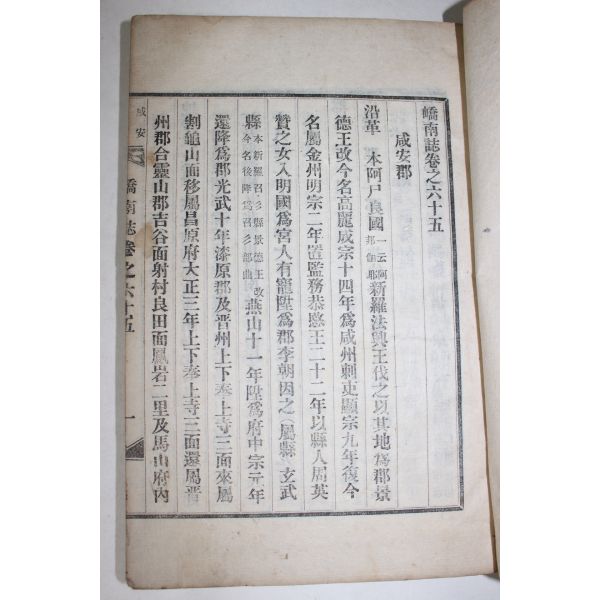 嶠南誌卷之六十五
咸安郡
沿革　本阿尸良國一云阿那伽耶新羅法興王伐之以其地爲郡景
德王改今名高麗成宗十四年爲咸州刺吏顯宗九年復今
名屬金州明宗二年置監務恭愍王二十二年以縣人周英
贊之女入明國爲宮人有寵陞爲郡李朝因之（屬縣　玄武
縣本新羅召彡縣景德王改今名後降爲召彡部曲燕山十一年陞爲府中宗元年
還降爲郡光武十年漆原郡及晋州上下奉上寺三面來屬
割龜山面移屬昌原府大正三年上下奉上寺三面還屬晋
州郡合靈山郡吉谷面射村良田面鳳岩二里及馬山府內
咸安
嶠南誌卷之六十五
一